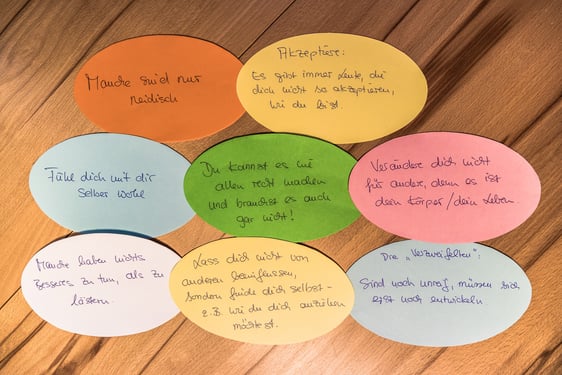 Manche sind nur
neidisch
Akzeptiere:
Es gibt immer Leute, die
dich nicht so akzeptieren,
wie du bist
Fühle dich mit dir
selber wohl
Du kannst es nie
allen recht machen
und brauchst es auch
gar nicht!
Verändere dich nicht
für andere, denn es ist
dein Körper/dein Leben
Manche haben nichts
besseres zu tun, als zu
lästern.
Lass dich nicht von
anderen beeinflussen,
sondern finde dich selbst -
z.B. wie du dich anziehen
möchtest.
Die "Verzweifelten":
Sind noch unreif, müssen sich
erst noch entwickeln